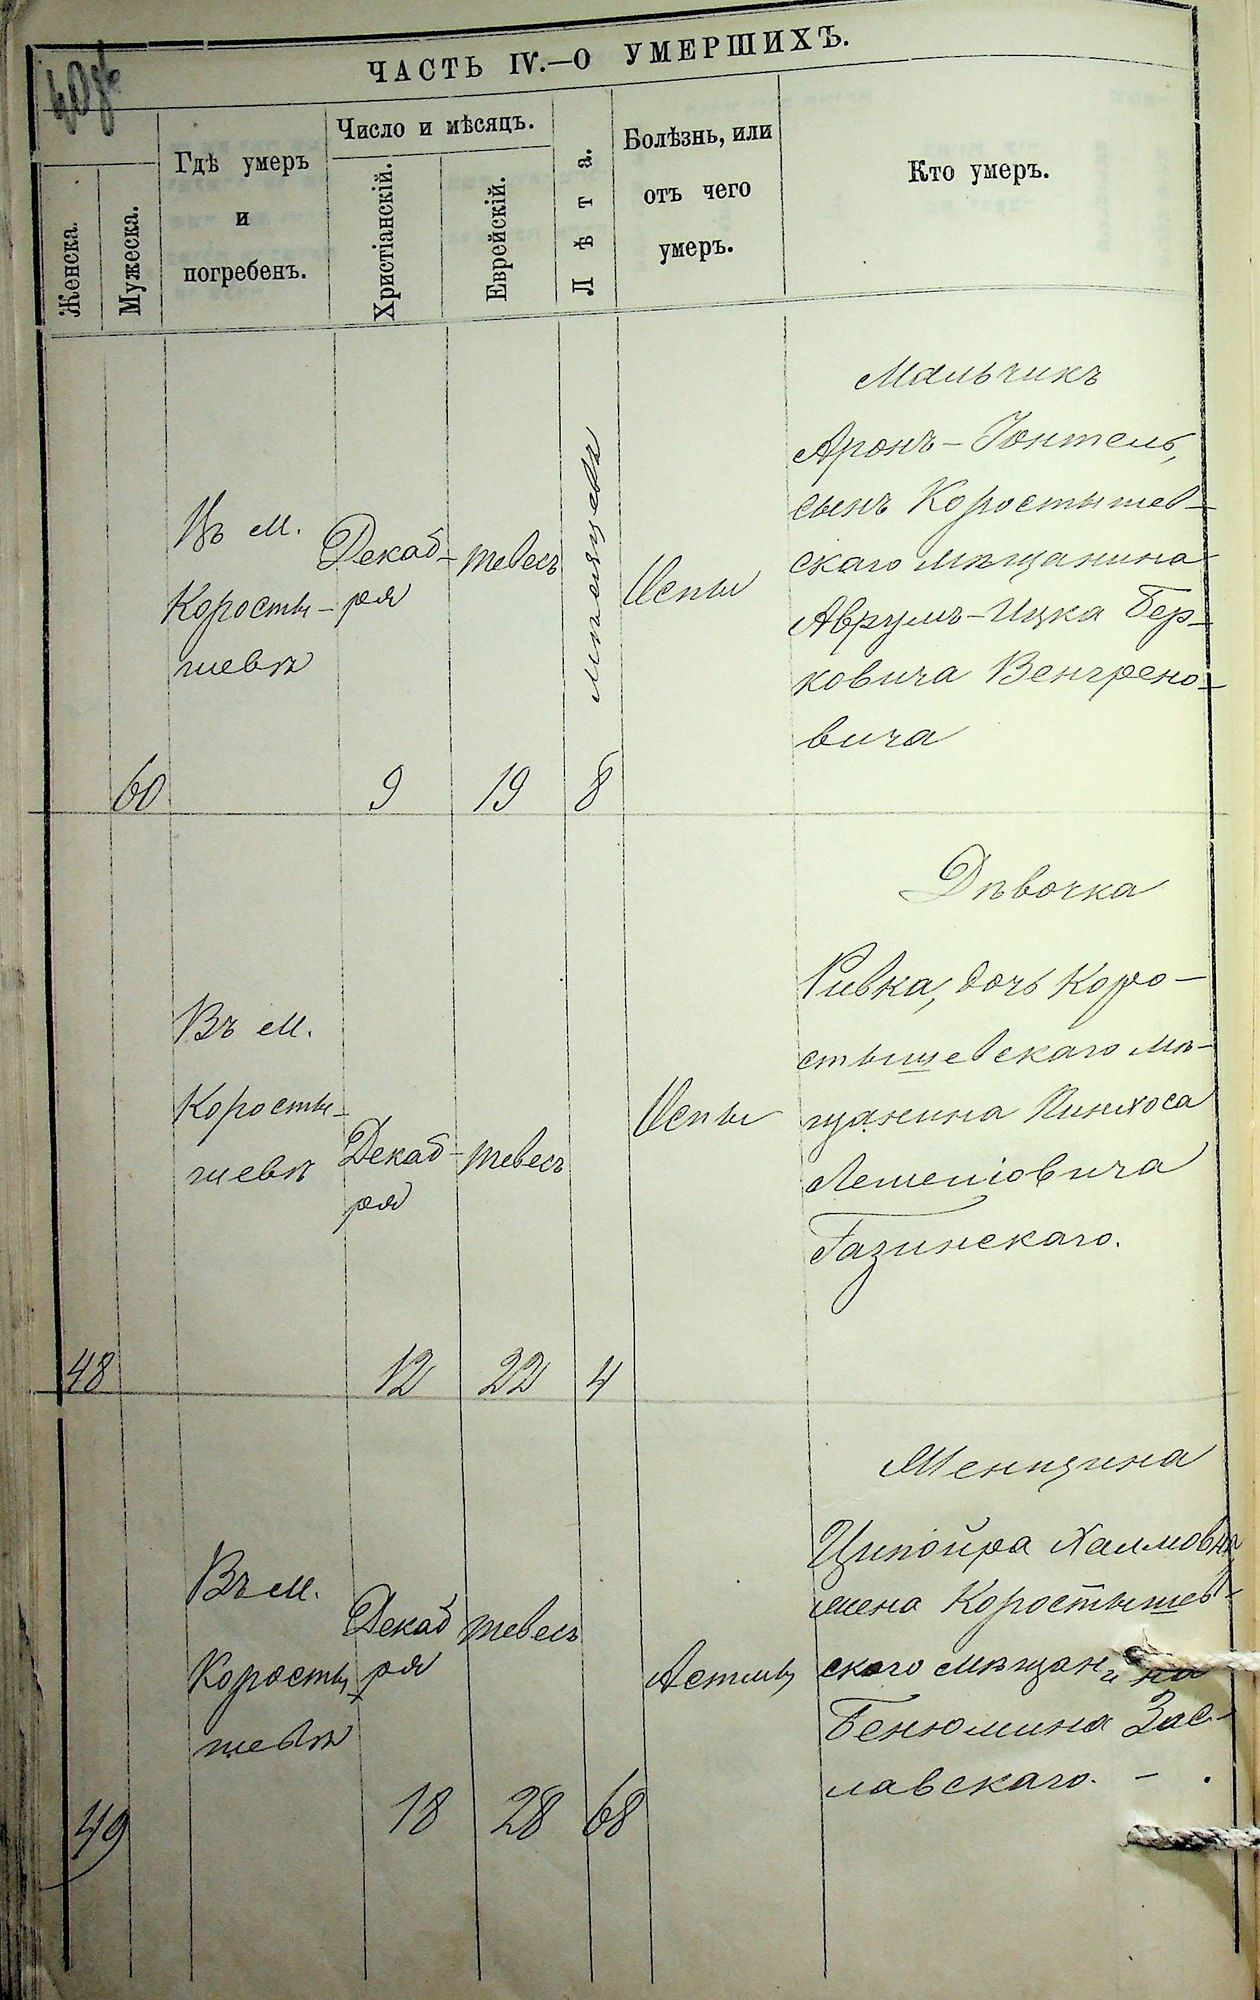 ЧАСТЬ IV.—О УМЕРШИХЪ.
Женска.
Мужеска.
Гдѣ умеръ
и
погребенъ.
Число и мѣсяцъ.
Христіанскій.
Еврейскій.
Лѣта.
Болѣзнь, или
отъ чего
умеръ.
Кто умеръ.
60
Въ м.
Коросты-
шевѣ
Декаб-
ря
9
тевесъ
19
мѣсяцевъ
8
Оспы
Мальчикъ
Аронъ-Іонтель,
сынъ Коростышев-
скаго мѣщанина
Аврумъ-Ицка Бер-
ковича Венгрено-
вича
48
Въ м.
Коросты-
шевѣ
Декаб-
ря
12
тевесъ
22
4
Оспы
Дѣвочка
Ривка, дочь Коро-
стышевскаго мѣ-
щанина Пинхоса
Газинскаго.
49
Въ м.
Коросты-
шевѣ
Декаб
ря
18
тевесъ
28
68
Астмы
Женщина
Ципойра Хаимовна,
жена Коростышев-
скаго мѣщанина
Бенюмина Зас-
лавскаго. —